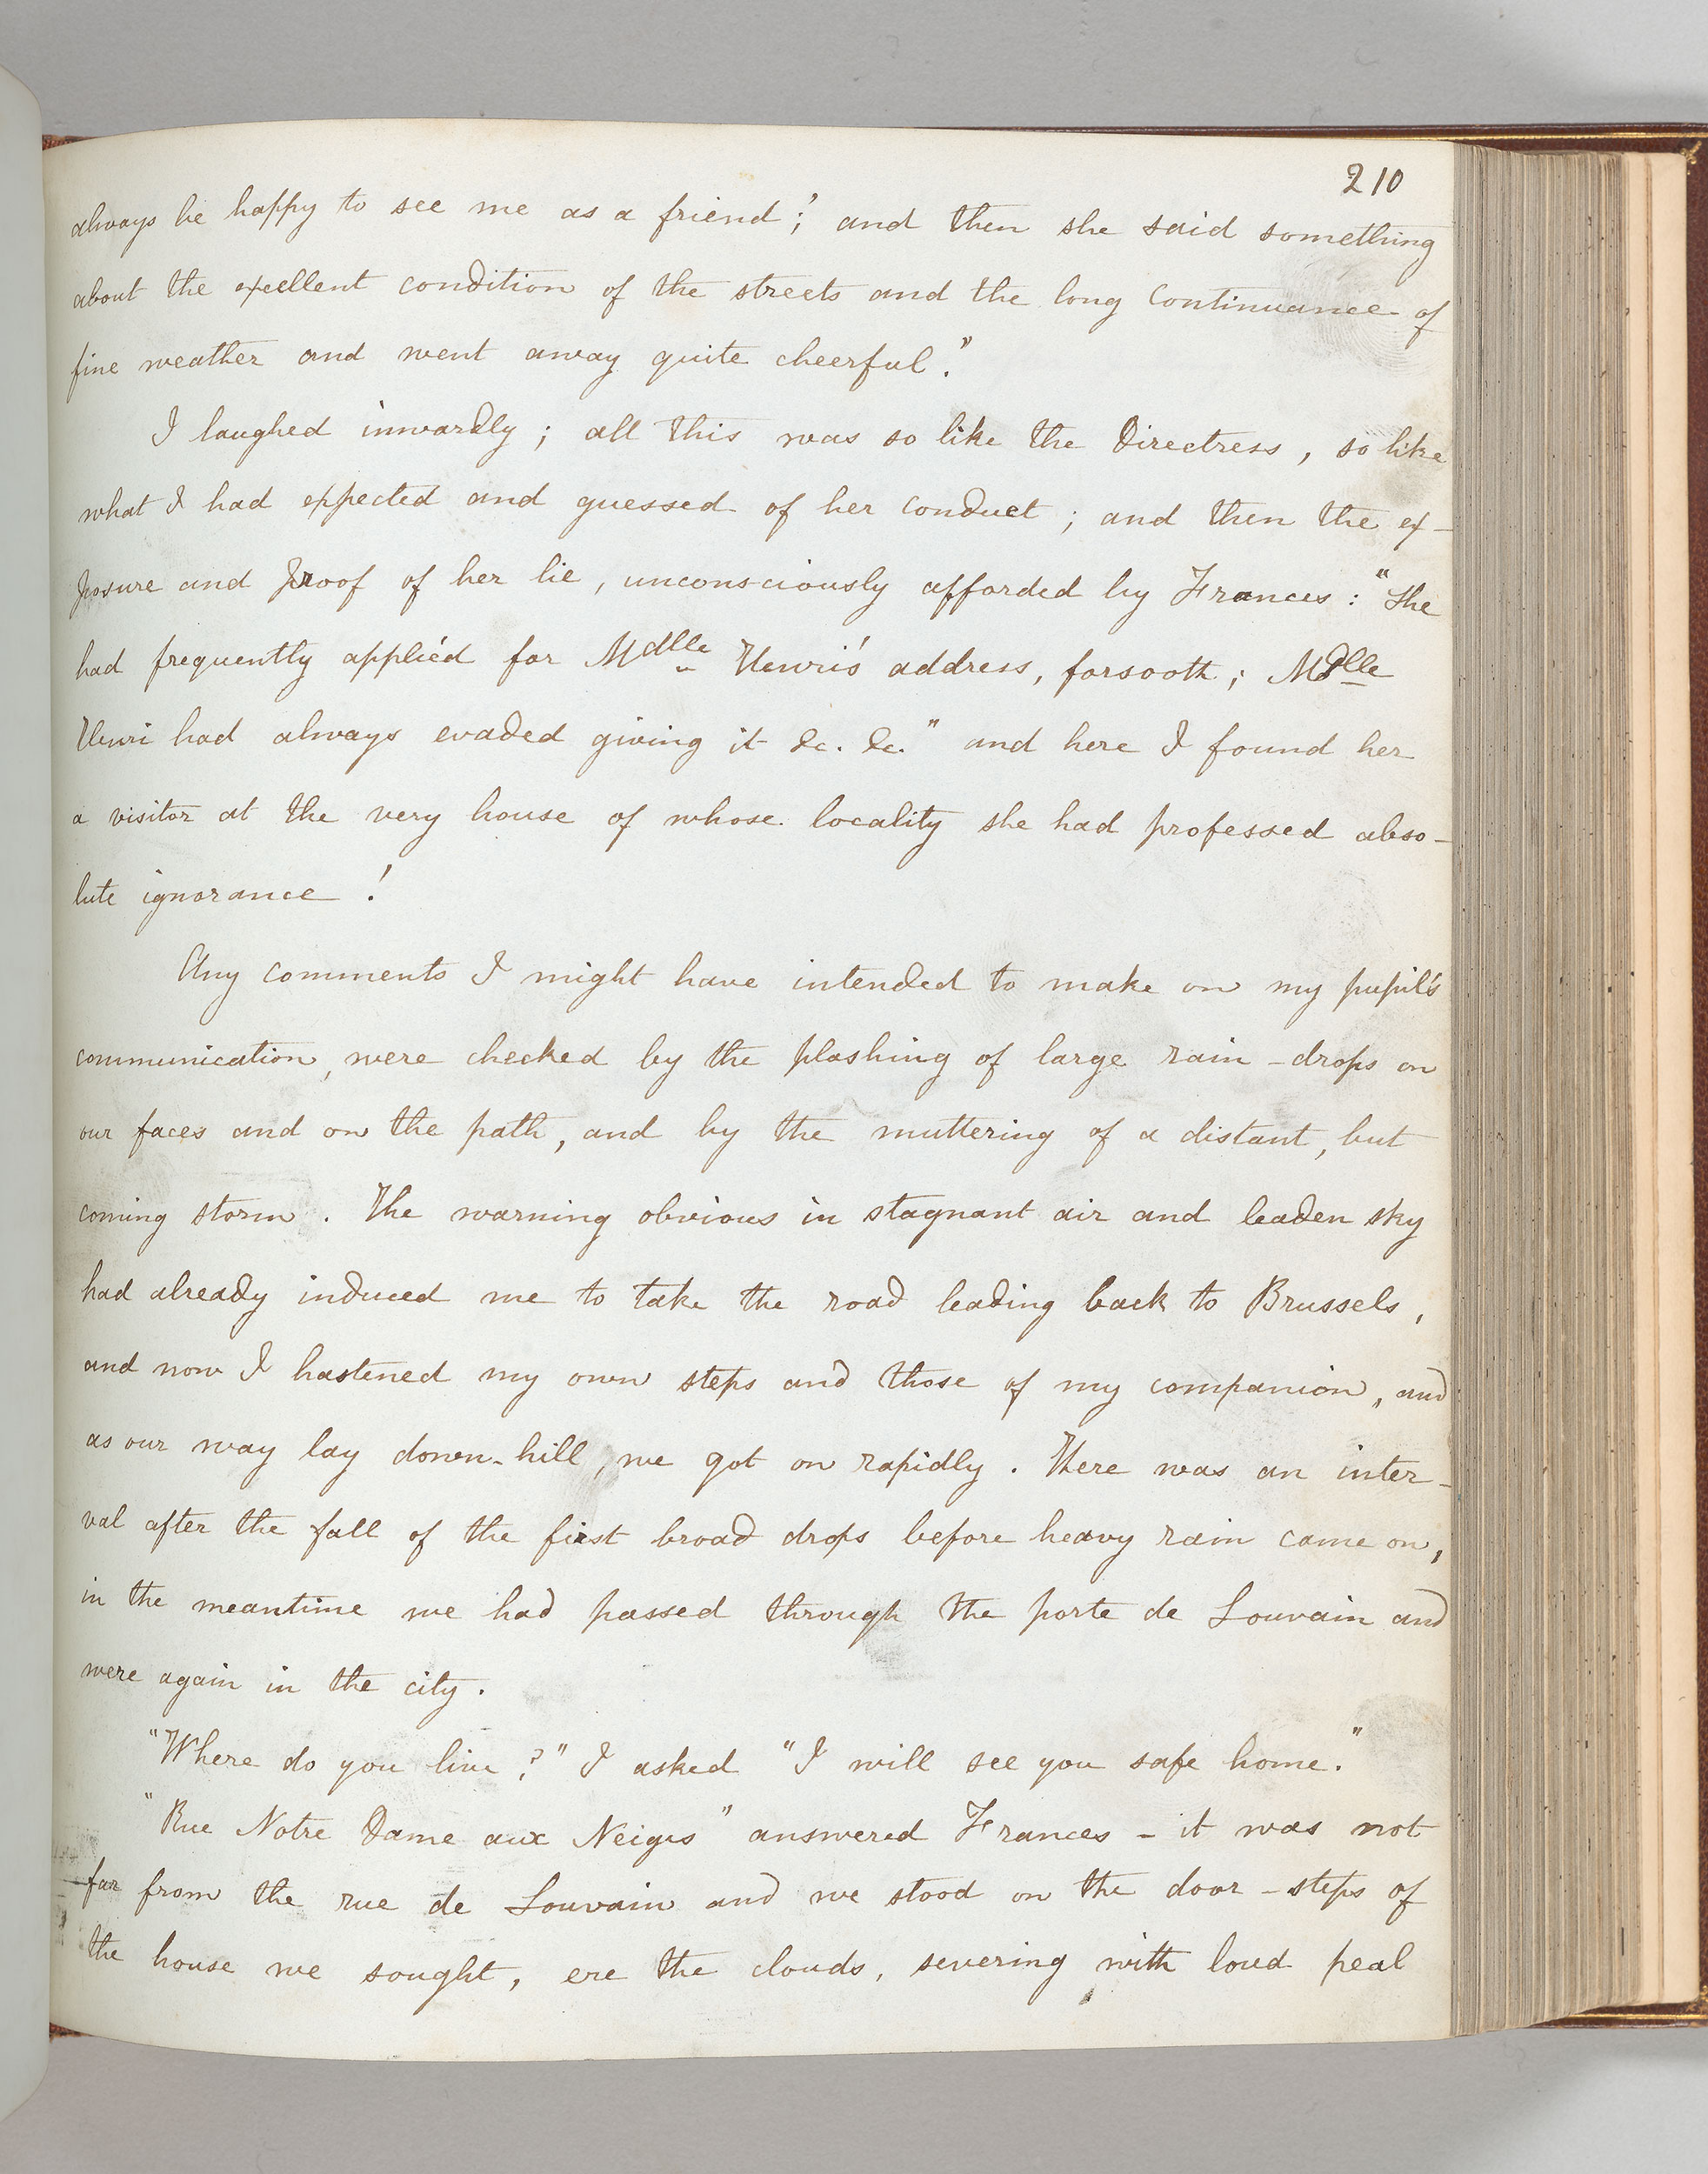 210
always be happy to see me as a friend;' and then she said something
about the excellent condition of the streets and the long continuance of
fine weather and went away quite cheerful."
I laughed inwardly; all this was so like the Directress, so like
what I had expected and guessed of her conduct; and then the ex-
posure and proof of her lie, unconsciously afforded by Frances: "She
had frequently applied for Mdlle Henri's address, forsooth; Mdlle
Henri had always evaded giving it &c. &c." and here I found her
a visitor at the very house of whose locality she had professed abso-
lute ignorance!
Any comments I might have intended to make on my pupil's
communication, were checked by the plashing of large rain-drops on
our faces and on the path, and by the muttering of a distant, but
coming storm. The warning obvious in stagnant air and leaden sky
had already induced me to take the road leading back to Brussels,
and now I hastened my own steps and those of my companion, and
as our way lay down-hill, we got on rapidly. There was an inter-
val after the fall of the first broad drops before heavy rain came on,
in the meantime we had passed through the porte de Louvain and
were again in the city.
"Where do you live?" I asked "I will see you safe home."
"Rue Notre Dame aux Neiges" answered Frances - it was not
far from the rue de Louvain and we stood on the door-steps of
the house we sought, ere the clouds, severing with loud peal